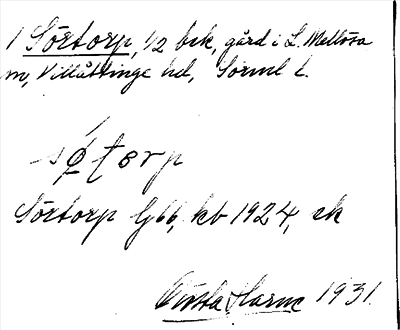 1 Sörtorp, 1/2 bek, gård i L. Mellösa
sn, Villåttinge hd, Sörml l.
sø̷torp
Sörtorp Gbb, kb 1924, ek
Gösta Harne 1931.